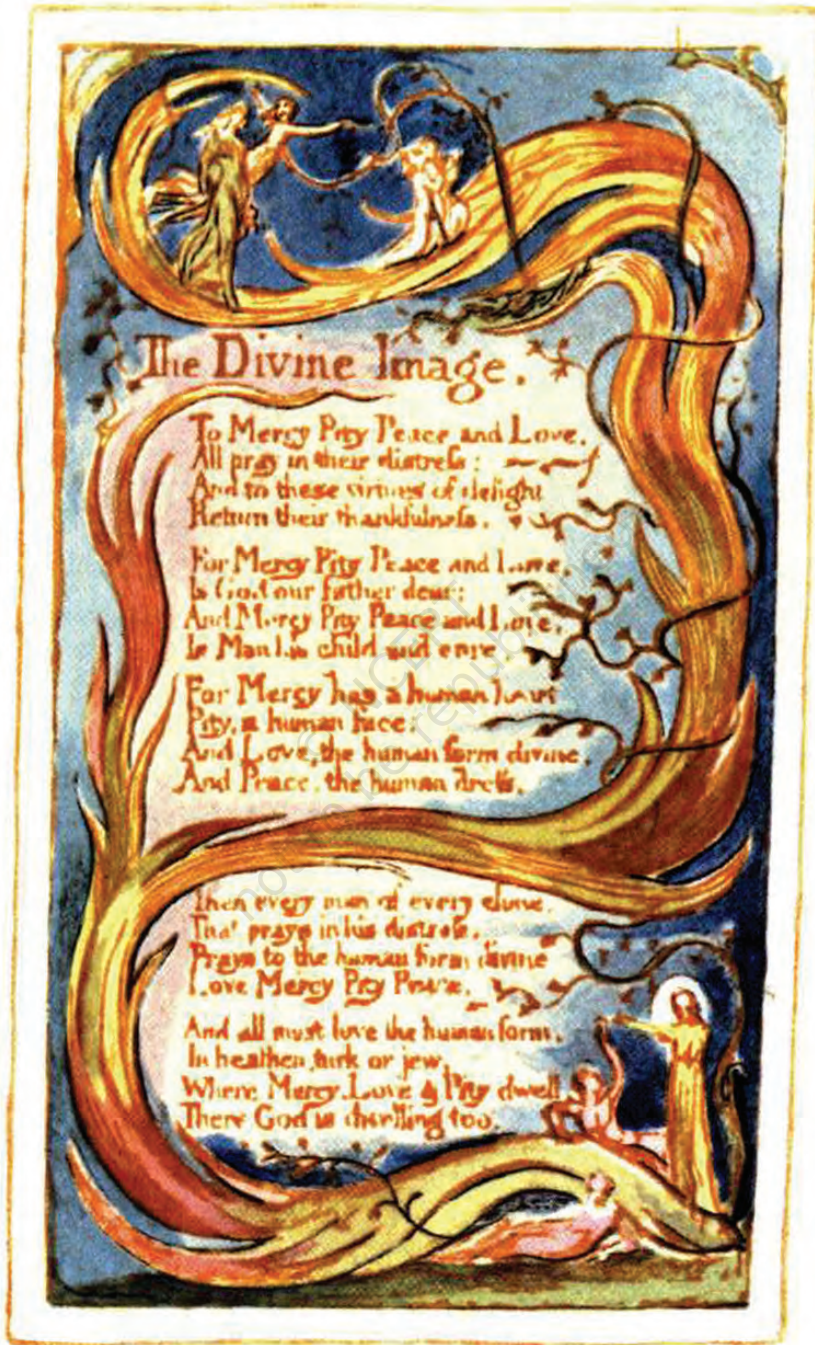 The Divine Image.
To Mercy Pity Peace and Love,
All pray in their distress:
And to these virtues of delight
Return their thankfulness.
For Mercy Pity Peace and Love,
Is God our father dear:
And Mercy Pity Peace and Love,
Is Man his child and care.
For Mercy has a human heart
Pity, a human face:
And Love, the human form divine,
And Peace, the human dress.
Then every man of every clime,
That prays in his distress,
Prays to the human form divine
Love Mercy Pity Peace.
And all must love the human form,
In heathen, turk or jew.
Where Mercy, Love & Pity dwell
There God is dwelling too.
© NCERT
not to be republished